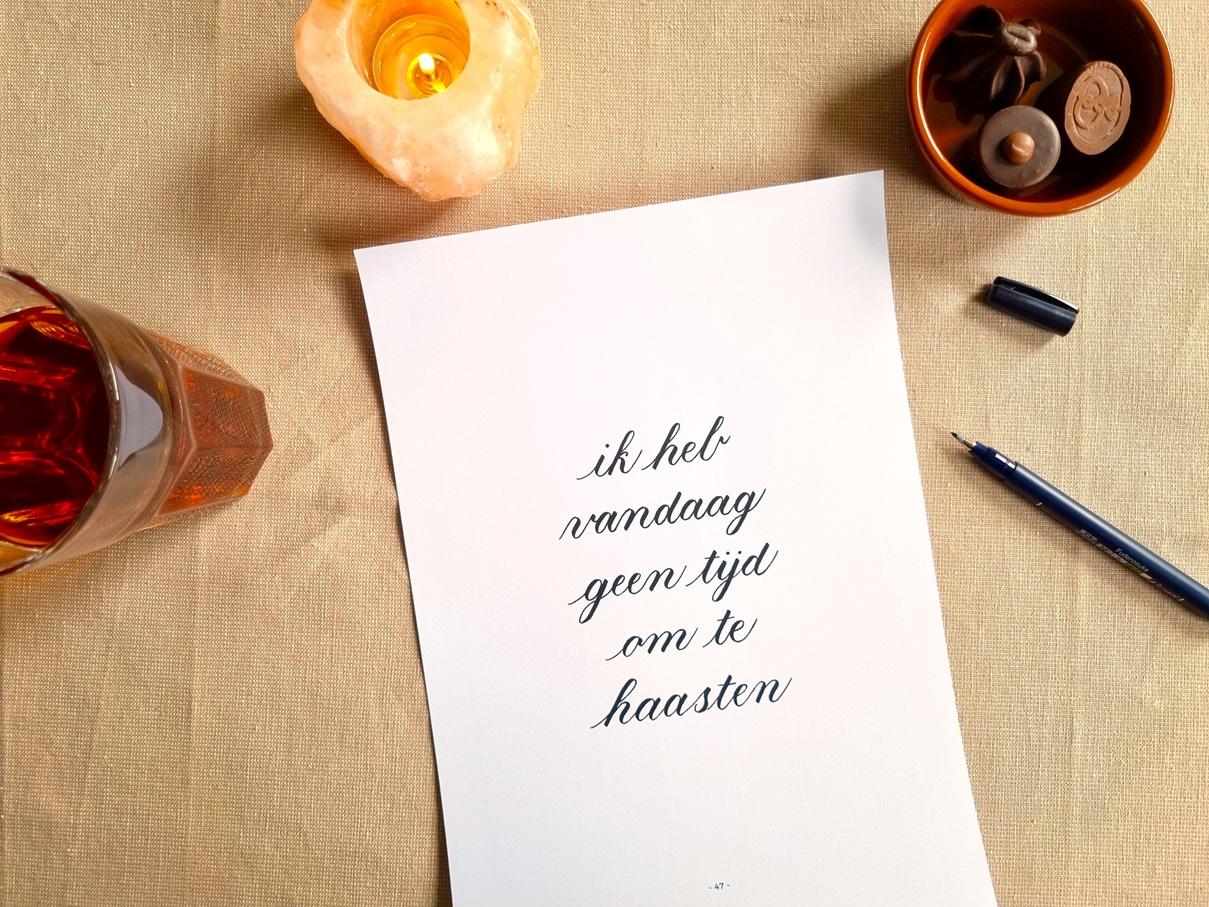 ik heb
vandaag
geen tijd
om te
haasten
- 47 -
Fudenosuke